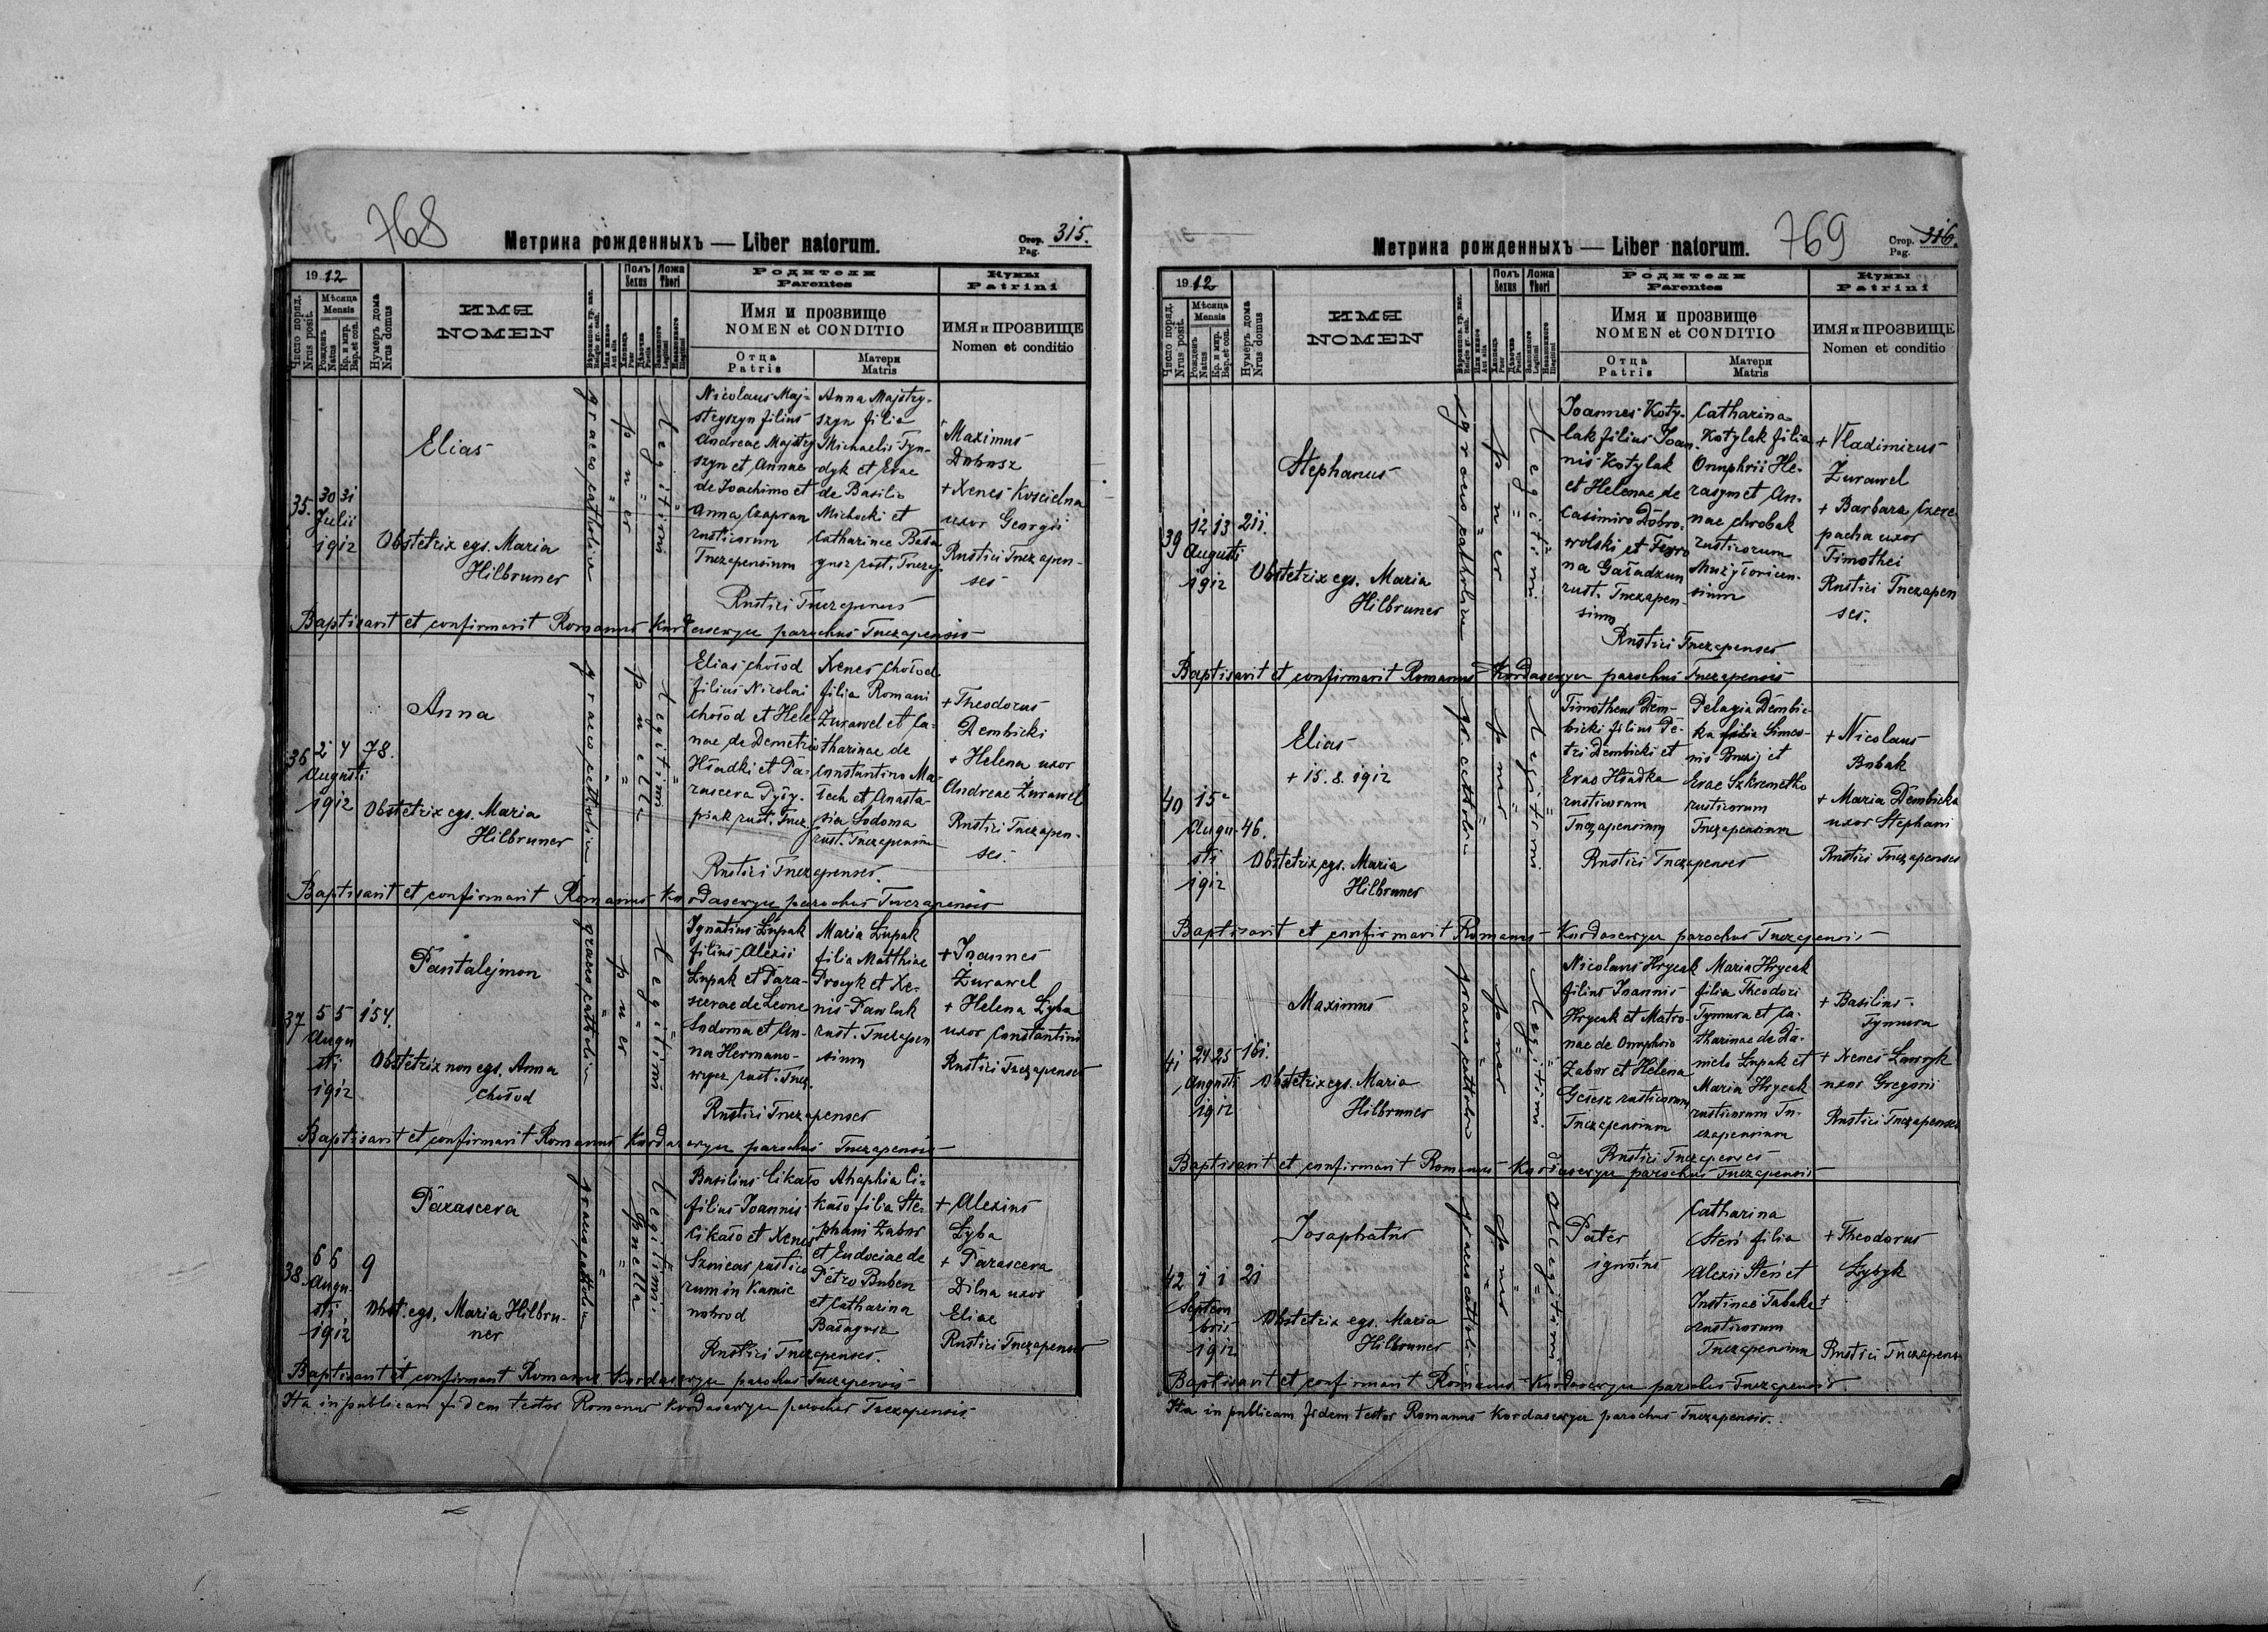 768
Метрика рожденныхъ — Liber natorum.
Стор. Pag. 315.
1912
Число поряд. Nrus posit.
Мѣсяца Mensis
Рожденъ Natus
Кр. и мѵр. Bap. et con.
Нумеръ дома Nrus domus
ИМЯ
NOMEN
Полъ Sexus
Ложа Thori
Родители
Parentes
Имя и прозвище
NOMEN et CONDITIO
Отца
Patris
Матери
Matris
Кумы
Patrini
ИМЯ и ПРОЗВИЩЕ
Nomen et conditio
35.
30 31
Julii
1912
Elias
Obstetrix egs. Maria
Hilbruner
graeco catholica
puer
legitimi
Nicolaus Maj-
stryszyn filius
Andreae Majstry
szyn et Annae
de Joachimo et
Anna Czapran
rusticorum
Tuczapensium
Anna Majstry-
szyn filia
Michaelis Tyn-
dyk et Evae
de Basilio
Michocki et
Catharinae
rust. Tuczap.
Rustici Tuczapenses
Maximus
Dobosz
+ Xenes Koscielna
uxor Georgii
Rustici Tuczapen-
ses
Baptisavit et confirmavit Romanus Kordasewycz parochus Tuczapensis
36
2 4
Augusti
1912
78.
Anna
Obstetrix egs. Maria
Hilbruner
graeco catholica
puella
legitimi
Elias Chołod
filius Nicolai
Chołod et Hele
nae de Demetrio
Hładki et Pa-
rascera
rust. Tucz.
Xenes Chołod
filia Romani
Żurawel et Ca-
tharinae de
Constantino Ma-
et Anasta-
sia Sodoma
rust. Tuczapensium
Rustici Tuczapenses.
+ Theodorus
Dembicki
+ Helena uxor
Andreae Żurawel
Rustici Tuczapen-
ses.
Baptisavit et confirmavit Romanus Kordasewycz parochus Tuczapensis
37
5 5
Augu
sti
1912
154.
Pantalejmon
Obstetrix non egs. Anna
Chołod
graeco catholica
puer
legitimi
Ignatius Łupak
filius Alexii
Łupak et Para-
scevae de Leone
Sodoma et An-
na Hermano-
wycz rust. Tucz.
Maria Łupak
filia Matthiae
Procyk et Xe-
nis Pawluk
rust. Tuczapen
sium
Rustici Tuczapenses
+ Joannes
Żurawel
+ Helena Zyba
uxor Constantini
Rustici Tuczapenses
Baptisavit et confirmavit Romanus Kordasewycz parochus Tuczapensis
38
6 6
Augu-
sti
1912
9
Parascera
Obst. egs. Maria Hilbru-
ner
graeco catholica
puella
legitimi
Basilius Cikało
filius Joannis
Cikało et Xenes
rustico
rum in Kamie
nobrod
Ahaphia Ci-
kało filia Ste-
phani Zabor
et Eudociae de
Petro Buben
et Catharina
Rustici Tuczapenses.
+ Alexius
Zyba
+ Parascera
Dilna uxor
Eliae
Rustici Tuczapenses
Baptisavit et confirmavit Romanus Kordasewycz parochus Tuczapensis
Ita in publicam fidem testor Romanus Kordasewycz parochus Tuczapensis
769
Метрика рожденныхъ — Liber natorum.
Стор. Pag. 316.
1912
Число поряд. Nrus posit.
Мѣсяца Mensis
Рожденъ Natus
Кр. и мѵр. Bap. et con.
Нумеръ дома Nrus domus
ИМЯ
NOMEN
Полъ Sexus
Ложа Thori
Родители
Parentes
Имя и прозвище
NOMEN et CONDITIO
Отца
Patris
Матери
Matris
Кумы
Patrini
ИМЯ и ПРОЗВИЩЕ
Nomen et conditio
39
12 13
Augusti
1912
211.
Stephanus
Obstetrix egs. Maria
Hilbruner
graeco catholica
puer
legitimi
Joannes Koty-
lak filius Joan-
nis Kotylak
et Helenae de
Casimiro Dobro-
wolski et Fewro
na
rust. Tuczapen-
sium
Catharina
Kotylak filia
Onuphrii He-
rasym et An-
nae Chrobak
rusticorum
sium
Rustici Tuczapenses
+ Vladimirus
Żurawel
+ Barbara Czere
pacha uxor
Timothei
Rustici Tuczapen
ses.
Baptisavit et confirmavit Romanus Kordasewycz parochus Tuczapensis
40
15
Augu-
sti
1912
46.
Elias
+ 15.8.1912
Obstetrix egs. Maria
Hilbruner
gr. catholica
puer
legitimi
Timotheus Dem-
bicki filius Pe-
tri Dembicki et
Evae Hładka
rusticorum
Tuczapensium
Pelagia Dembic-
ka filia Simeo-
nis et
Evae
rusticorum
Tuczapensium
Rustici Tuczapenses
+ Nicolaus
Bubak
+ Maria Dembicka
uxor Stephani
Rustici Tuczapenses
Baptisavit et confirmavit Romanus Kordasewycz parochus Tuczapensis
41
24 25
Augusti
1912
161.
Maximus
Obstetrix egs. Maria
Hilbruner
graeco catholica
puer
legitimi
Nicolaus Hrycak
filius Joannis
Hrycak et Matro-
nae de Onuphrio
Zabor et Helena
rusticorum
Tuczapensium
Maria Hrycak
filia Theodori
Tymura et Ca-
tharinae de Da-
niele Łupak et
Maria Hrycak
rusticorum Tu-
czapensium
Rustici Tuczapenses
+ Basilius
Tymura
+ Xenes Ławryk
uxor Gregorii
Rustici Tuczapenses
Baptisavit et confirmavit Romanus Kordasewycz parochus Tuczapensis
42
1 1
Septem
bris
1912
21
Josaphatus
Obstetrix egs. Maria
Hilbruner
graeco catholica
puer
illegitimi
Pater
ignotus
Catharina
Steń filia
Alexii Steń et
Justinae Tabaka
rusticorum
Tuczapensium
+ Theodorus
Zybyk
+
Rustici Tuczapens
Baptisavit et confirmavit Romanus Kordasewycz parochus Tuczapensis.
Ita in publicam fidem testor Romanus Kordasewycz parochus Tuczapensis.